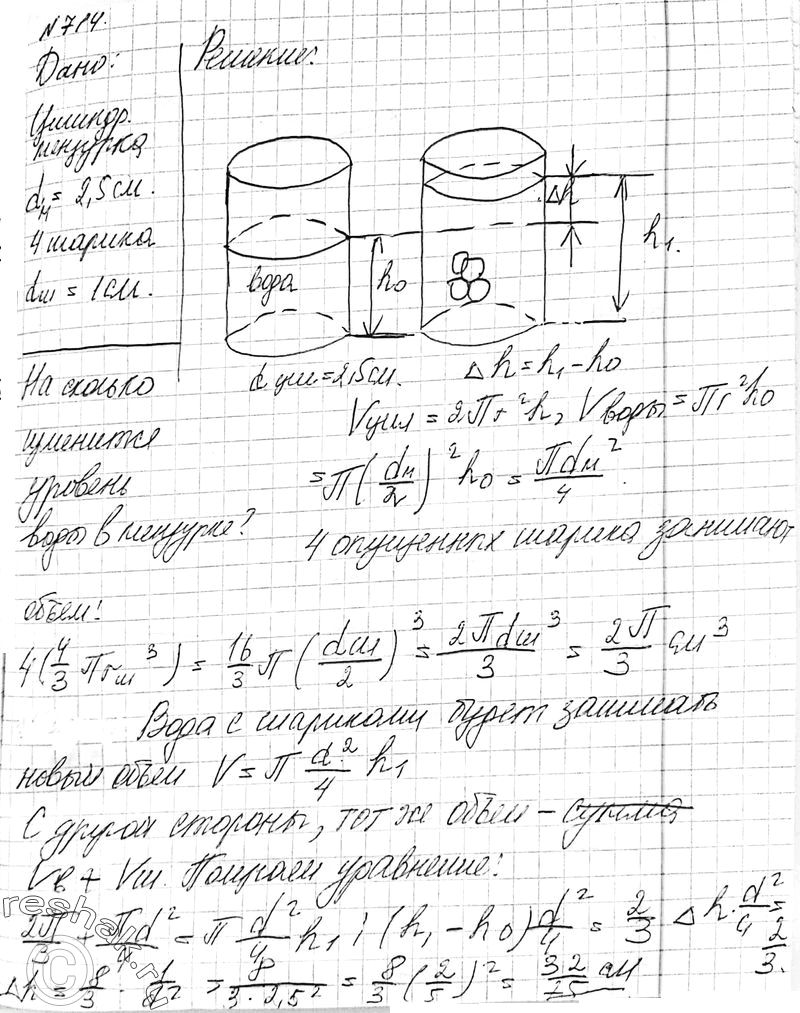 N 714.
Дано:
Решение:
Цилиндр.
мензурка
dм = 2,5 см.
4 шарика
dш = 1 см.
вода
h0
Δh
h1.
На сколько
изменится
уровень
воды в мензурке?
d цил = 2,5 см.
Δh = h1 - h0
Vцил = 2πr²h, Vводы = πr²h0
= π(dм/2)²h0 = πdм²/4.
4 опущенных шарика занимают
объем:
4(4/3 πrш³) = 16/3 π(dш/2)³ = 2πdш³/3 = 2π/3 см³
Вода с шариками будет занимать
новый объем V = π d²/4 h1
С другой стороны, тот же объем – сумма
Vв + Vш. Получаем уравнение:
2π/3 + π/4 d² = π d²/4 h1 ; (h1 - h0) d²/4 = 2/3 Δh · d²/4 = 2/3.
Δh = 8/3 · 1/d² = 8/(3·2,5²) = 8/3 (2/5)² = 32/75 см
reshak.ru